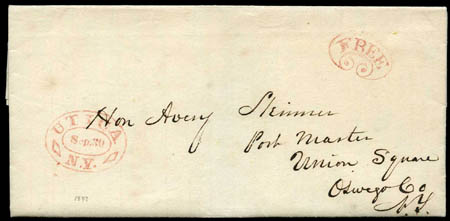 FREE
UTICA
Sep. 30
N.Y.
Hon Avery Skinner
Post Master
Union Square
Oswego Co
N.Y.